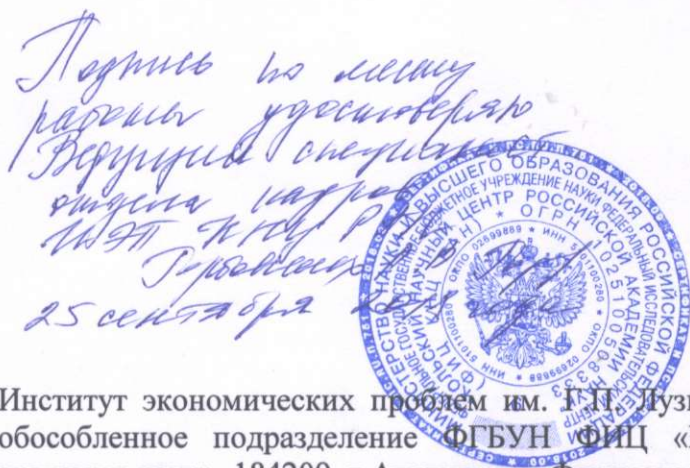 Подпись по месту
работы удостоверяю
Ведущий специалист
отдела кадров
ИЭП КНЦ РАН
25 сентября
МИНИСТЕРСТВО НАУКИ И ВЫСШЕГО ОБРАЗОВАНИЯ РОССИЙСКОЙ ФЕДЕРАЦИИ
ФЕДЕРАЛЬНОЕ ГОСУДАРСТВЕННОЕ БЮДЖЕТНОЕ УЧРЕЖДЕНИЕ НАУКИ ФЕДЕРАЛЬНЫЙ ИССЛЕДОВАТЕЛЬСКИЙ ЦЕНТР
КОЛЬСКИЙ НАУЧНЫЙ ЦЕНТР РОССИЙСКОЙ АКАДЕМИИ НАУК
(ФИЦ КНЦ РАН) * ОГРН 1025100508333
ИНН 5101100280 * ОКПО 02699889
Институт экономических проблем им. Г.П. Лузи
обособленное подразделение ФГБУН ФИЦ «
184209